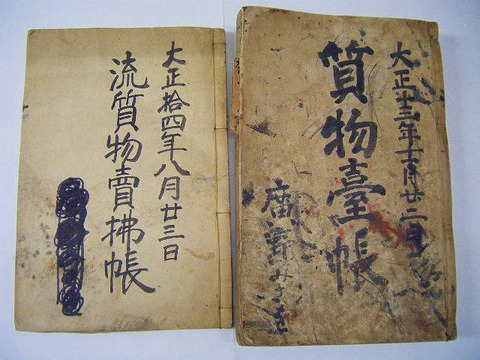 大正十三年十一月廿二日
質物臺帳
大正拾四年八月廿三日
流質物賣拂帳